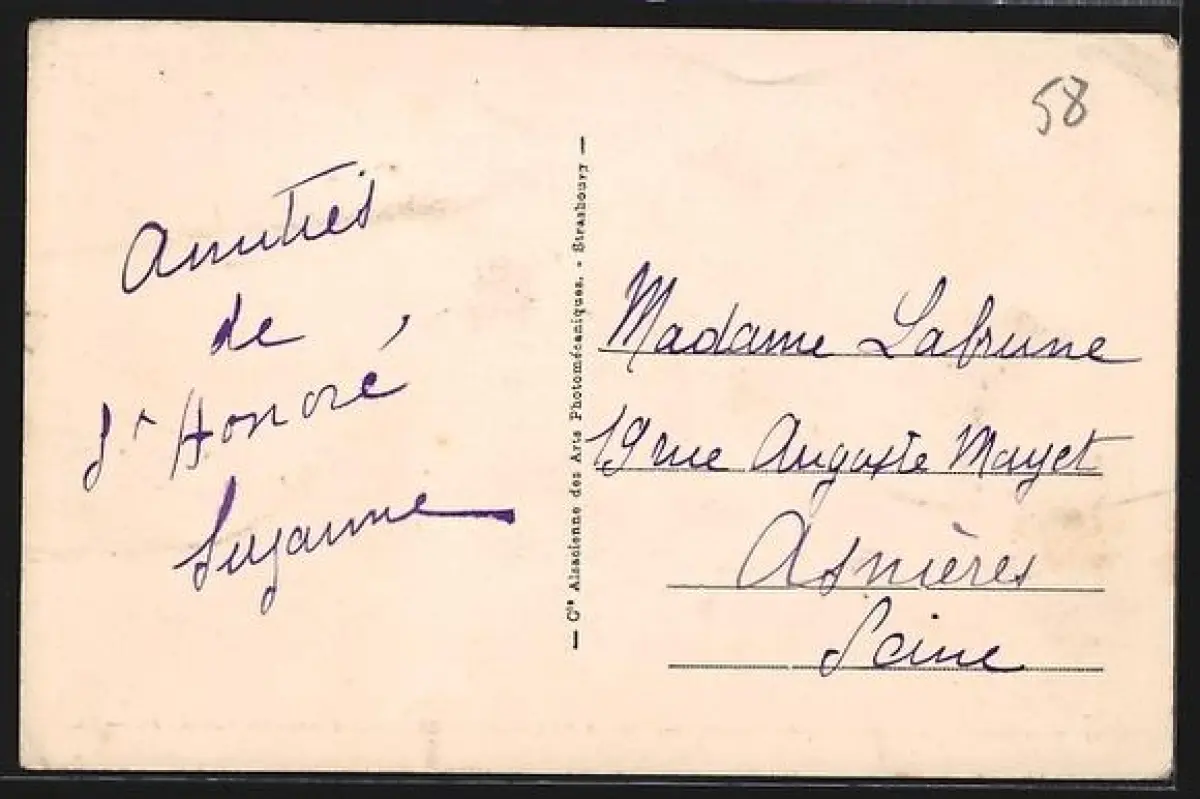 58
Amitiés
de
St Honoré
Suzanne
— Cie Alsacienne des Arts Photomécaniques. - Strasbourg —
Madame Labrune
19 rue Auguste Mayet
Asnières
Seine